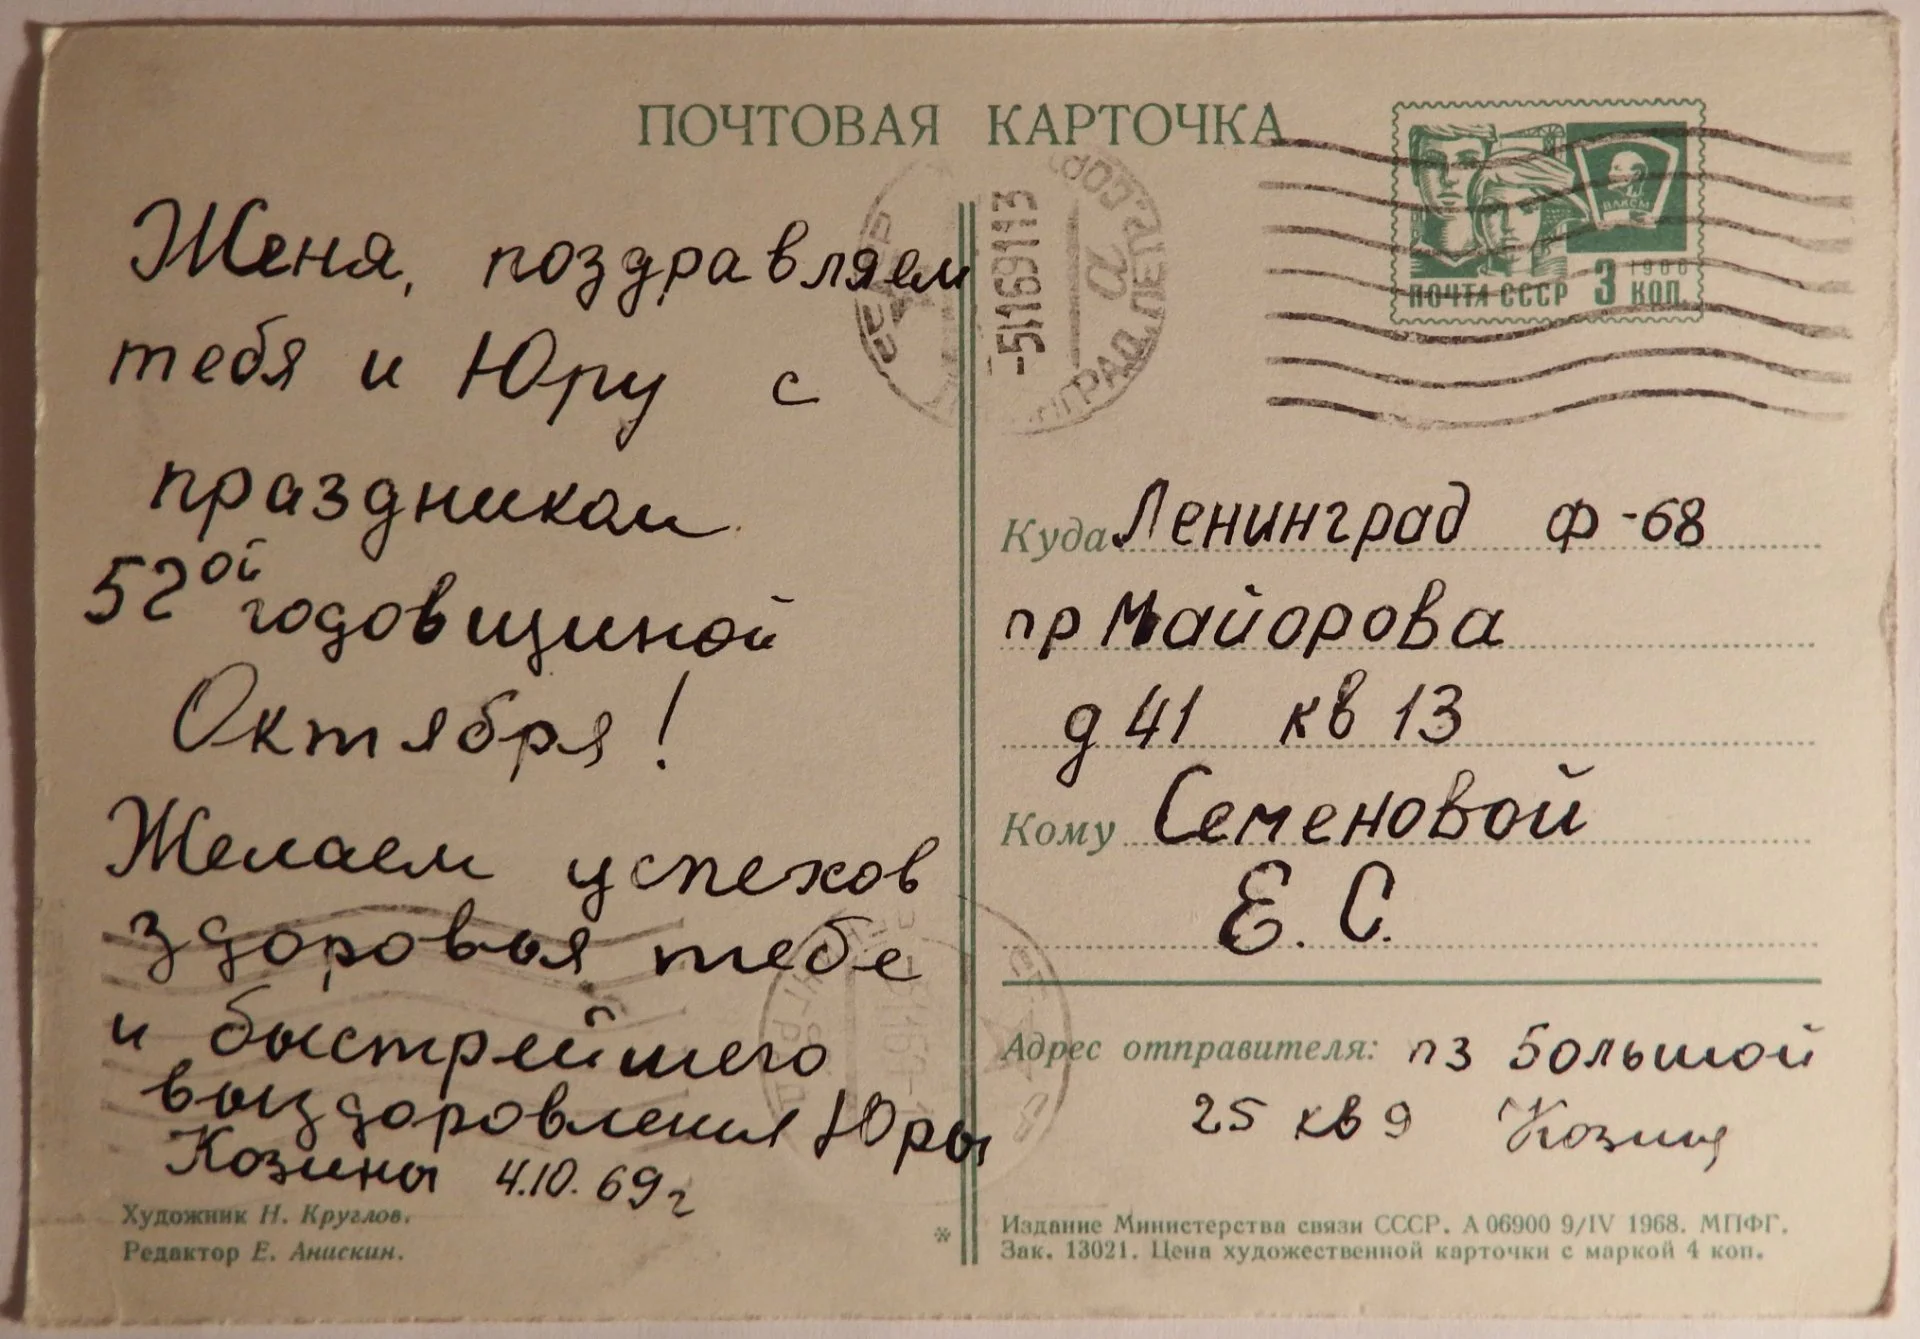 ПОЧТОВАЯ КАРТОЧКА
ВЛКСМ
1966
ПОЧТА СССР 3 КОП.
-51169113
Женя, поздравляем
тебя и Юру с
праздником
52ой годовщиной
Октября!
Желаем успехов
здоровья тебе
и быстрейшего
выздоровления Юры
Козины 4.10.69г
Художник Н. Круглов.
Редактор Е. Анискин.
Куда Ленинград Ф-68
пр Майорова
д 41 кв 13
Кому Семеновой
Е. С.
Адрес отправителя: п3 Большой
25 кв 9
*
Издание Министерства связи СССР. А 06900 9/IV 1968. МПФГ.
Зак. 13021. Цена художественной карточки с маркой 4 коп.